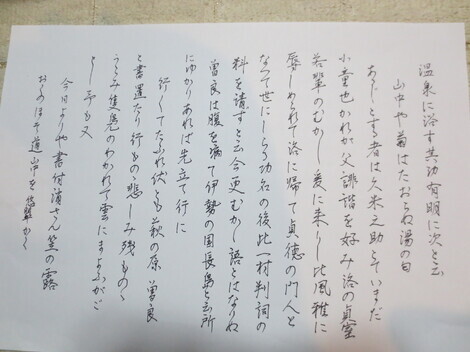 温泉に浴す其功有明に次と云
山中や菊はたおらぬ湯の匂
あるじとする者は久米之助とていまだ
小童也かれが父誹諧を好み洛の貞室
若輩のむかし爰に来りし比風雅に
辱しめられて洛に帰て貞徳の門人と
なつて世にしらる功名の後此一村判詞の
料を請ずと云今更むかし語とはなりぬ
曽良は腹を病て伊勢の国長島と云所
にゆかりあれば先立て行に
行くてたふれ伏とも萩の原 曽良
と書置たり行ものゝ悲しみ残ものゝ
うらみ隻鳧のわかれて雲にまよふがご
とし予も又
今日よりや書付消さん笠の露
おくのほそ道山中を かく